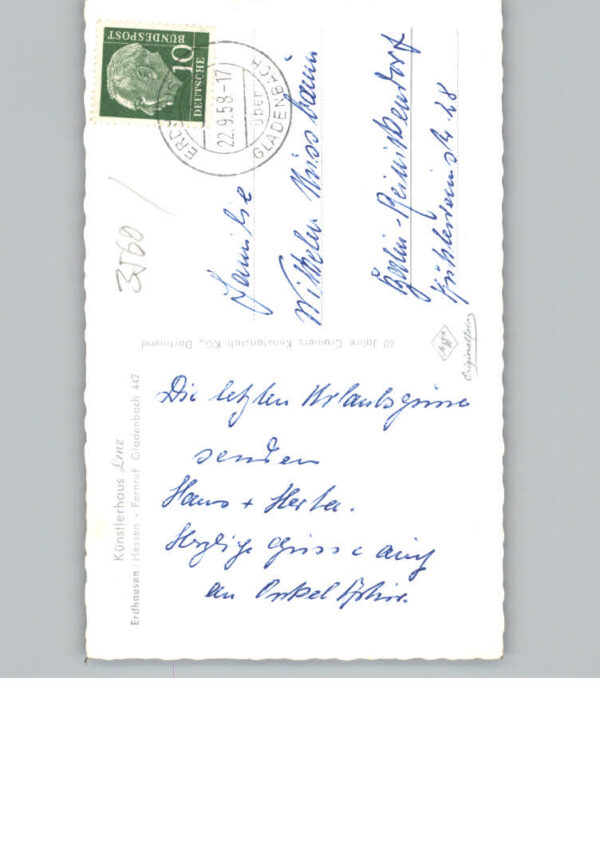 Künstlerhaus Lenz
Erdhausen Hessen - Fernruf Gladenbach 442
Die letzten Urlaubsgrüsse
senden
Hans + Herta.
Herzliche Grüsse auch
an Onkel
60 Jahre Cramers Kunstanstalt KG., Dortmund
3560
DEUTSCHE
BUNDESPOST
10
22.9.58-17
über
GLADENBACH
Familie
Wilhelm
Berlin-Reinickendorf
28
Originalfoto